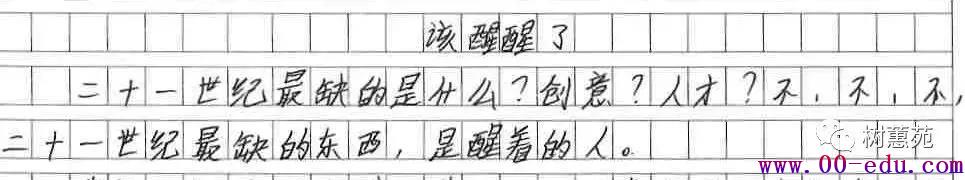 该醒醒了
二十一世纪最缺的是什么?创意?人才?不,不,不,
二十一世纪最缺的东西,是醒着的人。
树蕙苑
www.00-edu.com